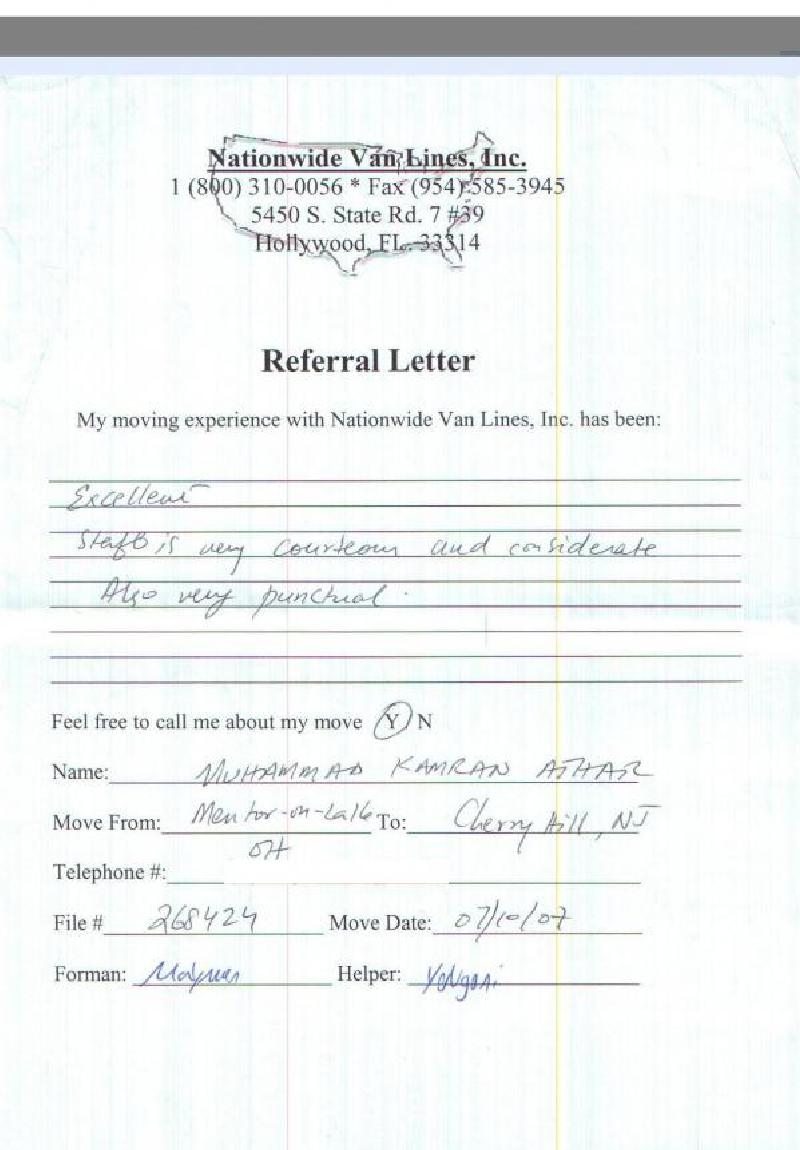 Nationwide Van Lines, Inc.
1 (800) 310-0056 * Fax (954) 585-3945
5450 S. State Rd. 7 #39
Hollywood, FL. 33314
Referral Letter
My moving experience with Nationwide Van Lines, Inc. has been:
Excellent
Staff is very courteous and considerate
Also very punctual.
Feel free to call me about my move Y N
Name: MUHAMMAD KAMRAN ATHAR
Move From: Mentor-on-Lake To: Cherry Hill, NJ
OH
Telephone #:
File # 268424 Move Date: 07/10/07
Forman: Helper: